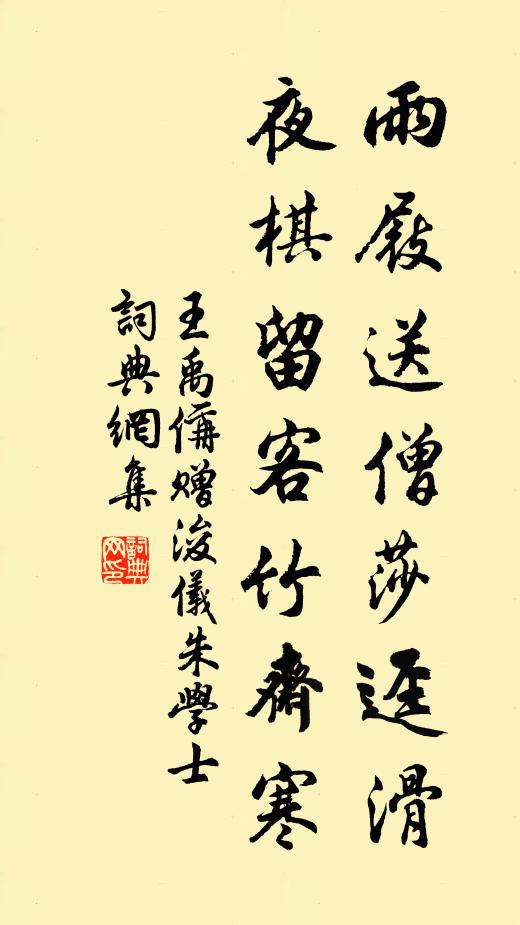 雨屐送僧莎逕滑
夜棋留客竹齋寒
王禹偁贈浚儀朱學士
詞典網集
詞典網印